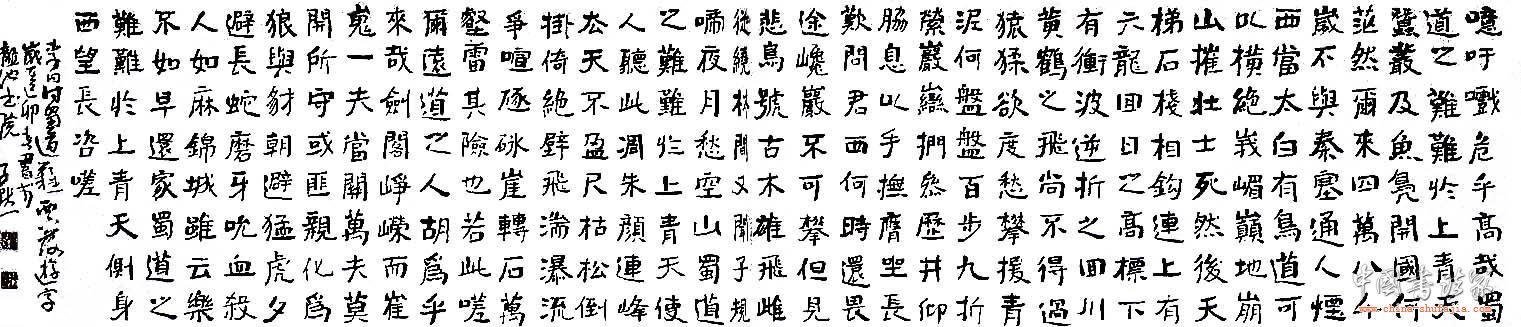 噫吁戲危乎高哉蜀
道之難難於上青天
蠶叢及魚鳧開國何
茫然爾來四萬八千
歲不與秦塞通人煙
西當太白有鳥道可
以橫絕峨嵋巔地崩
山摧壯士死然後天
梯石棧相鉤連上有
六龍回日之高標下
有衝波逆折之回川
黃鶴之飛尚不得過
猿猱欲度愁攀援青
泥何盤盤百步九折
縈巖巒捫參歷井仰
脇息以手撫膺坐長
歎問君西何時還畏
途巉巖不可攀但見
悲鳥號古木雄飛雌
從繞林間又聞子規
啼夜月愁空山蜀道
之難難於上青天使
人聽此凋朱顏連峰
去天不盈尺枯松倒
掛倚絕壁飛湍瀑流
爭喧豗砯崖轉石萬
壑雷其險也若此嗟
爾遠道之人胡為乎
來哉劍閣崢嶸而崔
嵬一夫當關萬夫莫
開所守或匪親化為
狼與豺朝避猛虎夕
避長蛇磨牙吮血殺
人如麻錦城雖云樂
不如早還家蜀道之
難難於上青天側身
西望長咨嗟
李白詩蜀道難
中国书法家
www.china-shufajia.com